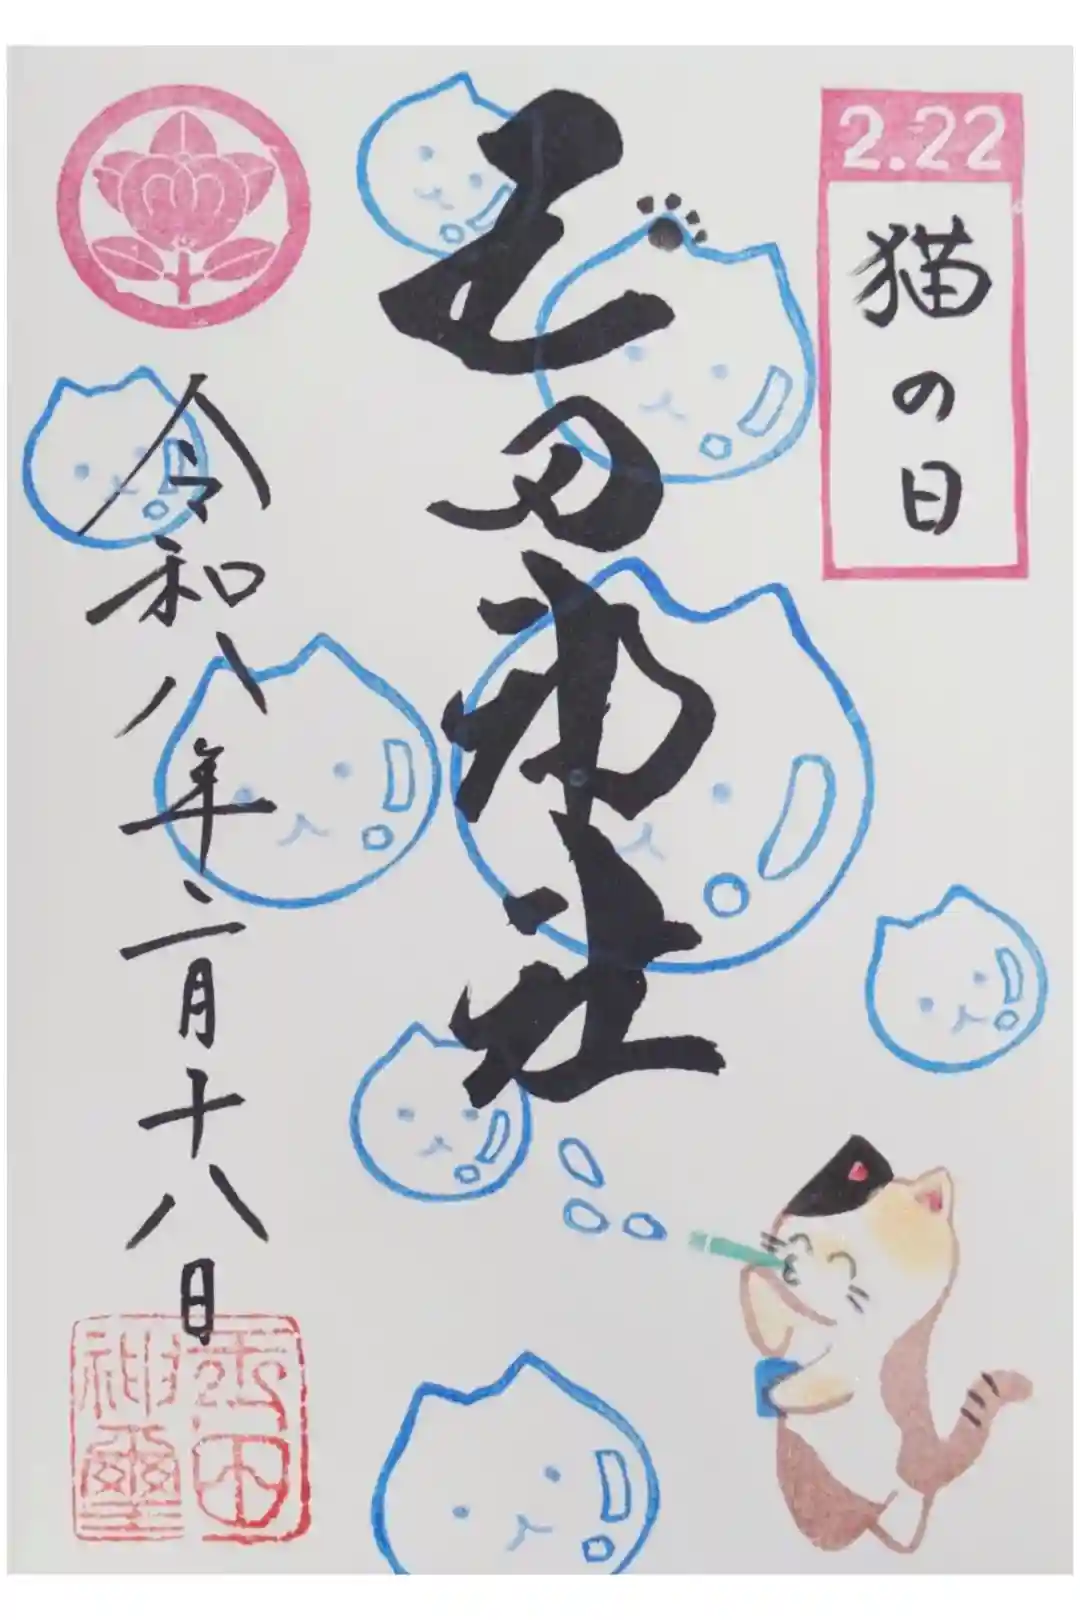 2.22
猫の日
玉田神社
令和八年二月十八日
玉田
神璽